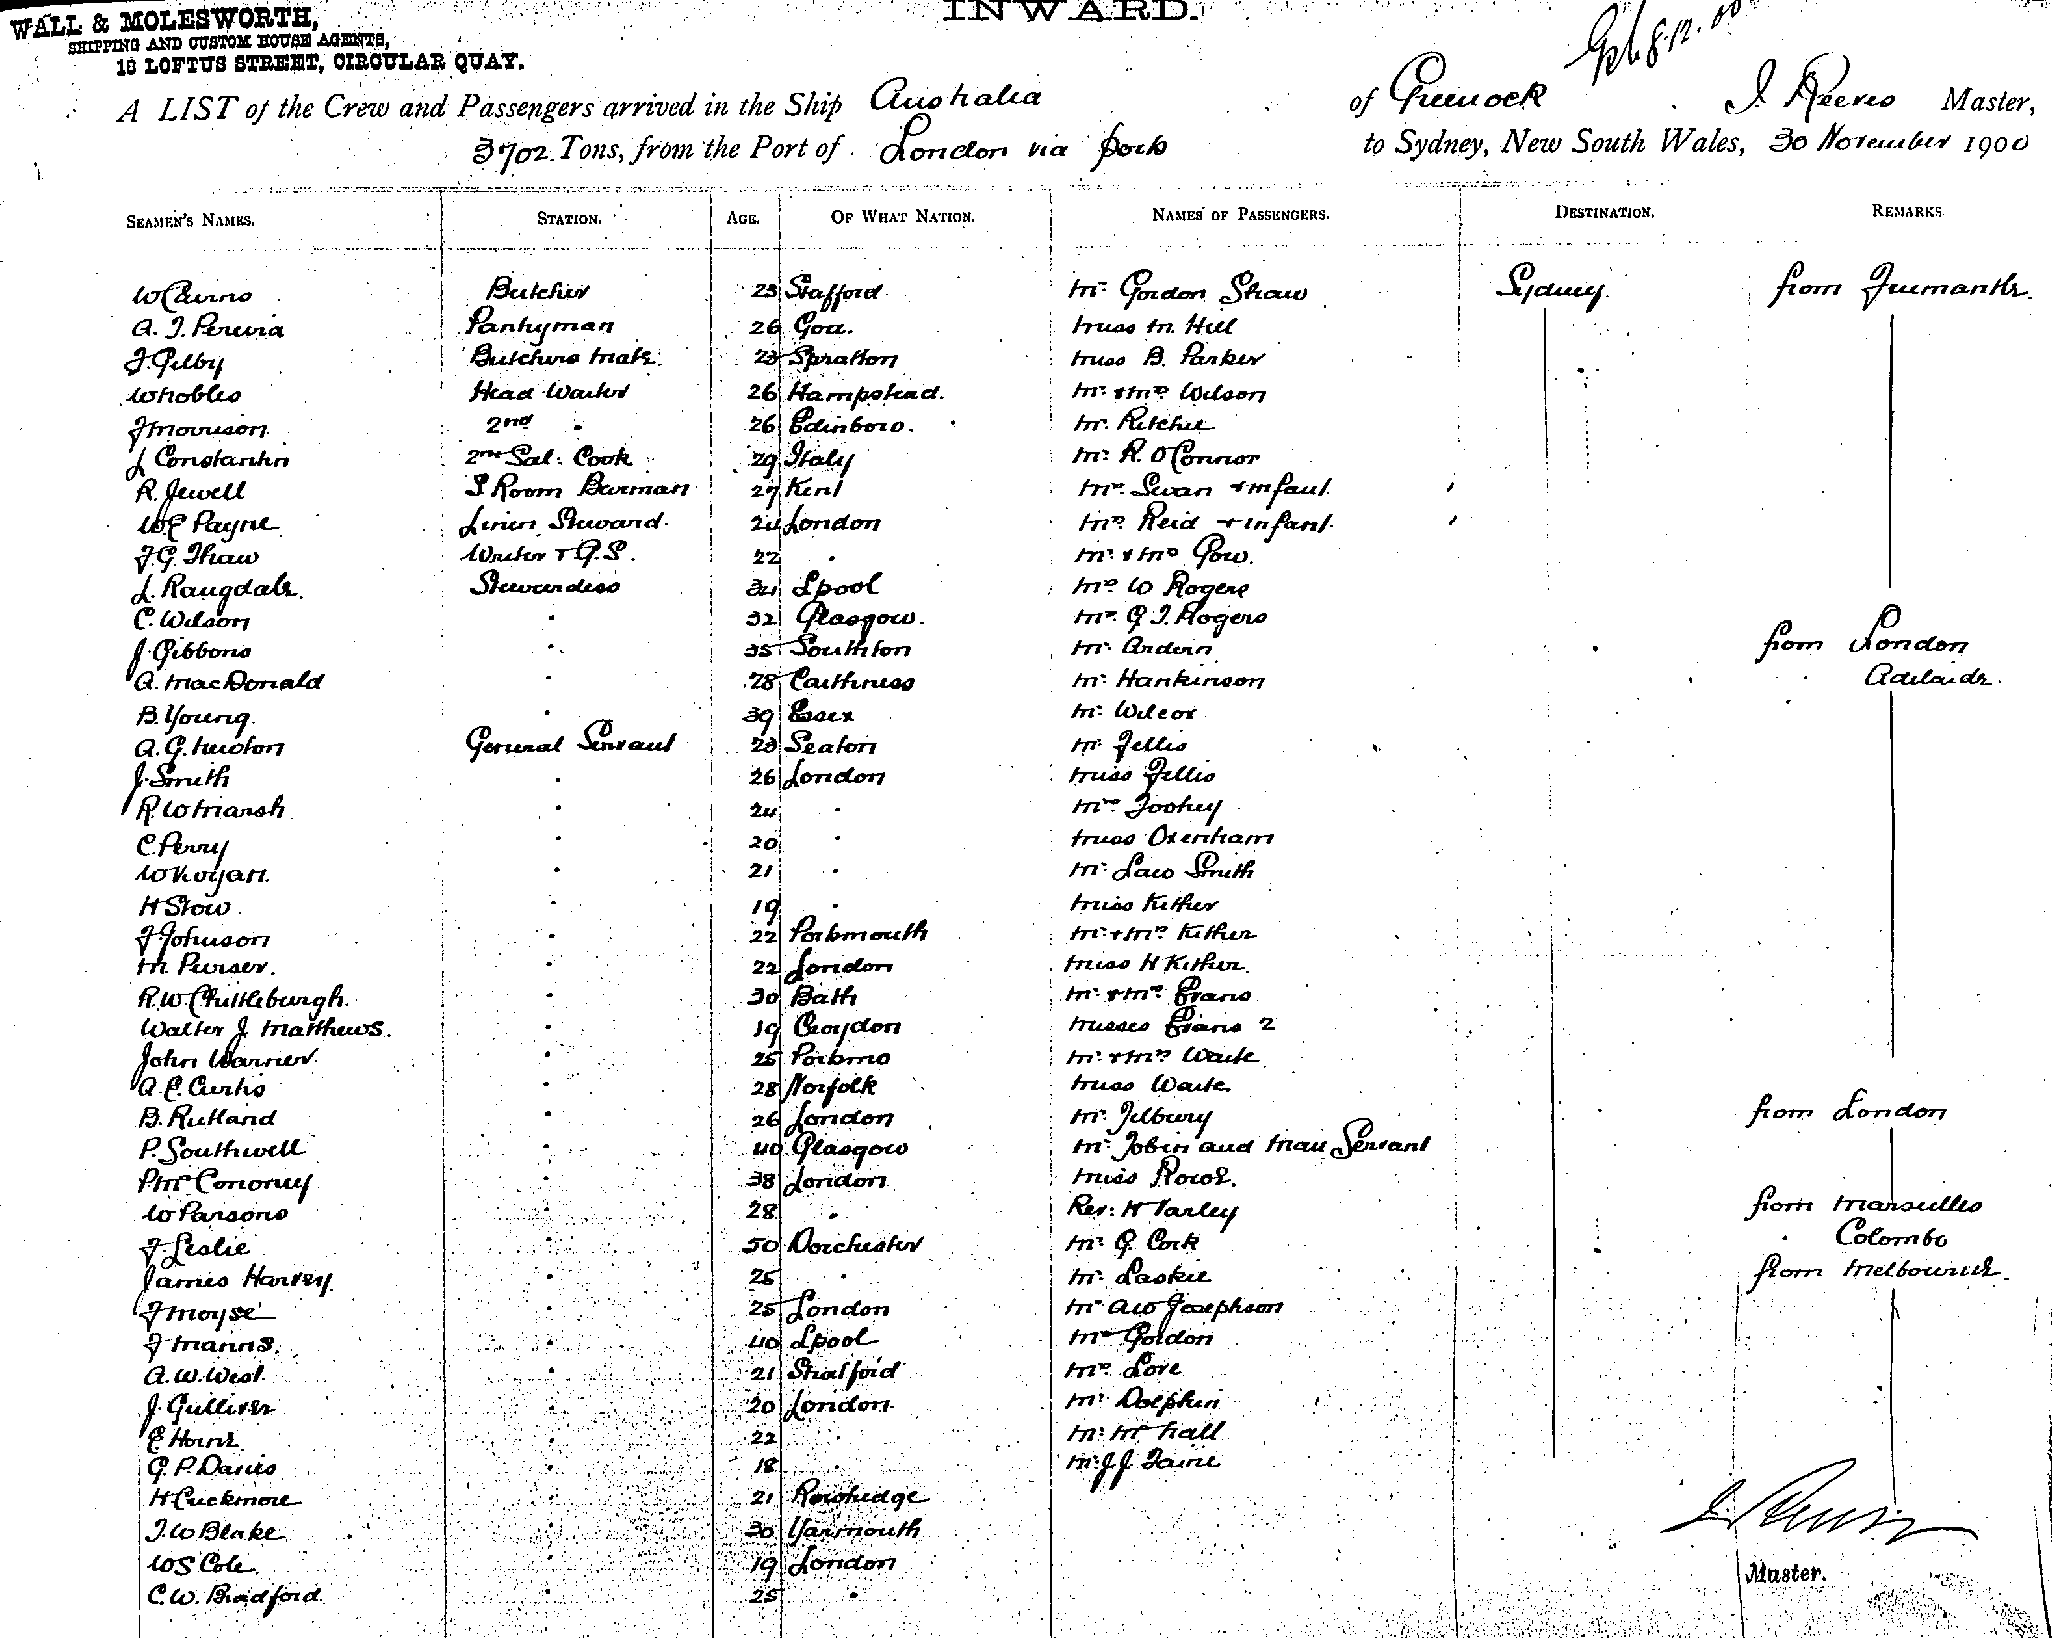 WALL & MOLESWORTH,
SHIPPING AND CUSTOM HOUSE AGENTS,
18 LOFTUS STREET, CIRCULAR QUAY.
INWARD.
8.12.00
A LIST of the Crew and Passengers arrived in the Ship Australia of Greenock J Reeves Master,
3702 Tons, from the Port of London via Ports to Sydney, New South Wales, 30 November 1900
SEAMEN'S NAMES. STATION. AGE. OF WHAT NATION. NAMES OF PASSENGERS. DESTINATION. REMARKS
W Cairns Butcher 23 Stafford Mr Gordon Shaw Sydney. from Fremantle.
A. J. Pereira Pantryman 26 Goa. Miss M. Hill
J. Gilby Butchers Mate. 23 Spratton Miss B. Parker
W Nobles Head Waiter 26 Hampstead. Mr. & Mrs Wilson
J Morrison 2nd " 26 Edinboro. Mr. Ritchie
J Constantin 2nd Sal. Cook 29 Italy Mr. R. O'Connor
R. Jewell S. Room Barman 27 Kent Mrs. Swan & infant.
W E Payne Linen Steward. 24 London Mrs. Reid & infant.
J. G. Thaw Waiter & G.S. 22 " Mr. & Mrs Gow.
L. Raugdale. Stewardess 34 Lpool Mrs W Rogers
C. Wilson " 32 Glasgow. Mrs. G J. Rogers
J. Gibbons " 35 Southton Mr. Andern from London
A. MacDonald " 28 Caithness Mr. Hankinson " Adelaide.
B. Young. " 39 Essex Mr. Wilcox
A. G. General Servant 23 Seaton Mr. Jellis
J. Smith " 26 London Miss Jellis
R. W Marsh " 24 " Mrs Toohey
C. Perry " 20 " Miss Oxenham
W " 21 " Mr. Law Smith
H Stow. " 19 " Miss Kither
J Johnson " 22 Portsmouth Mr. & Mrs. Kither
M Purser. " 22 London Miss H Kither.
R. W. Chittleburgh. " 30 Bath Mr & Mrs. Evans
Walter J. Matthews. " 19 Croydon Misses Evans 2
John Warner. " 25 Portsmo Mr. & Mrs. Waite
A. E. Curtis " 28 Norfolk Miss Waite.
B. Rutland " 26 London Mr. Jilbury from London
P. Southwell " 40 Glasgow Mr. Tobin and Man Servant
P McConomy " 38 London Miss Rowe.
W Parsons " 28 " Rev: H Tarley from Marseilles
J. Leslie " 50 Dorchester Mr. G. Cork " Colombo
James Harvey. " 25 " Mr. Laskie from Melbourne.
J Moyse " 25 London Mr A W Josephson
J Manns. " 40 Lpool Mrs Gordon
A. W. West. " 21 Stratford Mrs Love
J. Gulliver " 20 London Mr. Dolphin
E Horne. " 22 " Mr. McNall
G. P. Davies " 18 " Mr. J. J. Fairie
H Cuckmore " 21 Rowhedge
J. W Blake " 30 Yarmouth
W S Cole. " 19 London
C. W. Bradford. " 25 "
J. Reeves
Master.